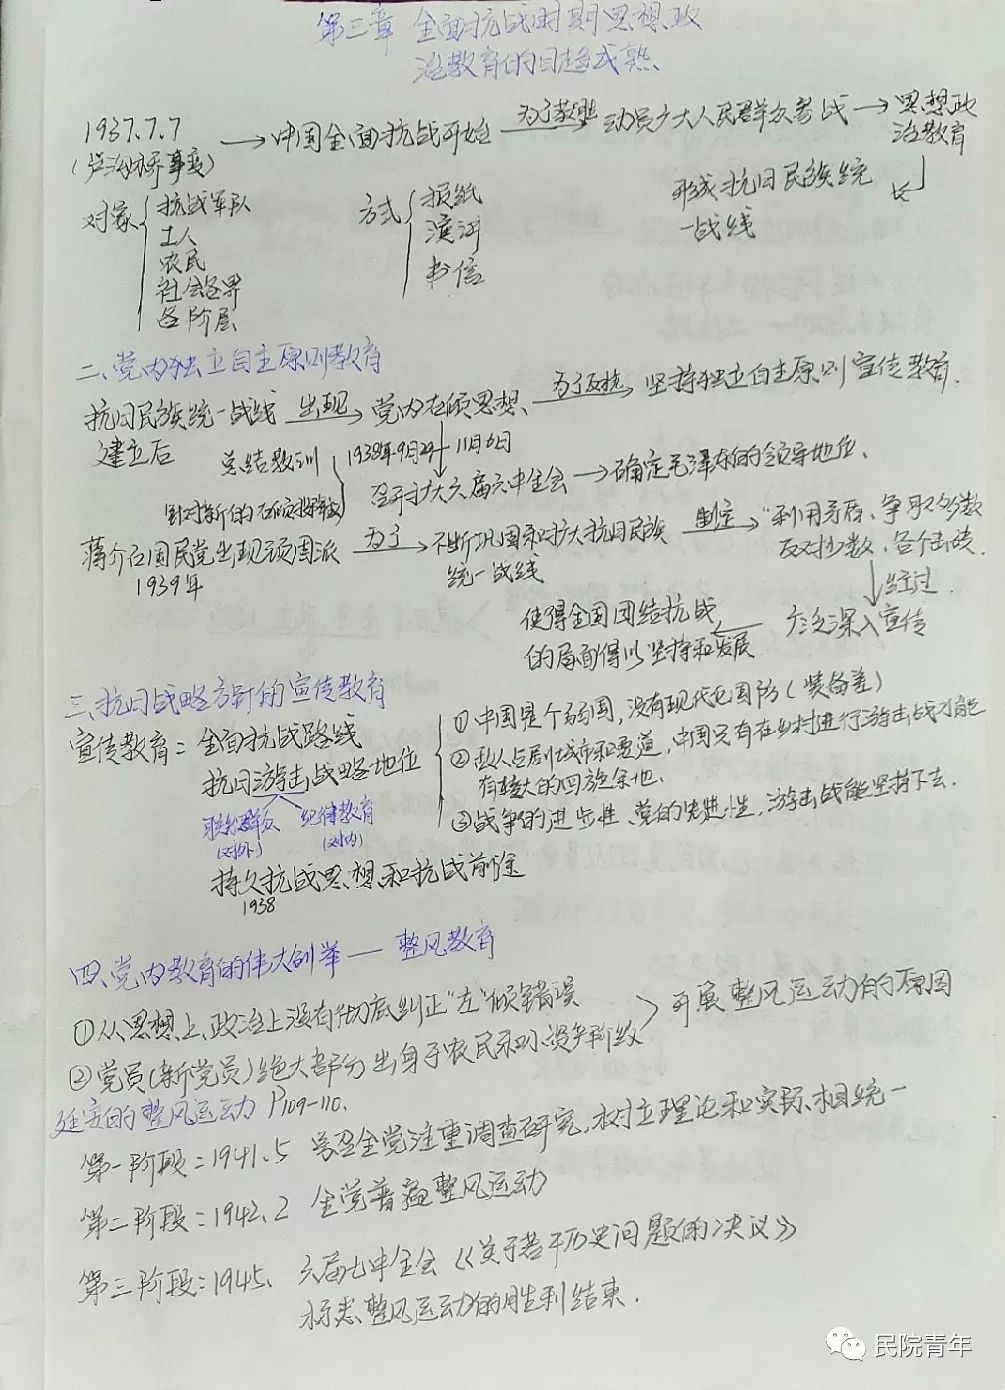 第三章 全面抗战时期思想政
治教育的日趋成熟
1937.7.7 → 中国全面抗战开始 → 动员广大人民群众参战 → 思想政
(卢沟桥事变) 治教育
对象 抗战军队 方式 报纸 形成抗日民族统
工人 演讲 一战线
农民 书信
社会各界
各阶层
二、党内独立自主原则教育
抗日民族统一战线 出现→ 党内右倾思想 为了反抗→ 坚持独立自主原则宣传教育.
建立后 总结教训 1938年9月29—11月6日
针对新的右倾投降 召开扩大六届六中全会 → 确定毛泽东的领导地位、
蒋介石国民党出现顽固派 为了→ 不断巩固和扩大抗日民族 制定→ “利用矛盾、争取多数
1939年 统一战线 反对少数、各个击破.
↓经过
使得全国团结抗战 ← 广泛深入宣传
的局面得以坚持和发展
三、抗日战略方针的宣传教育
宣传教育: 全面抗战路线 ①中国是个弱国,没有现代化国防(装备差)
抗日游击战略地位 ②敌人占剧城市和要道,中国只有在乡村进行游击战才能
有较大的回旋余地.
联系群众 纪律教育 ③战争的进步性、党的先进性,游击战能坚持下去.
(对外) (对内)
持久抗战思想和抗战前途
1938
四、党内教育的伟大创举——整风教育
①从思想上、政治上没有彻底纠正“左”倾错误 > 开展整风运动的原因
②党员(新党员)绝大部分出身于农民和小资产阶级
延安的整风运动 P109-110.
第一阶段:1941.5 号召全党注重调查研究,树立理论和实际相统一
第二阶段:1942.2 全党普遍整风运动
第三阶段:1945. 六届七中全会《关于若干历史问题的决议》
标志整风运动的胜利结束.
民院青年